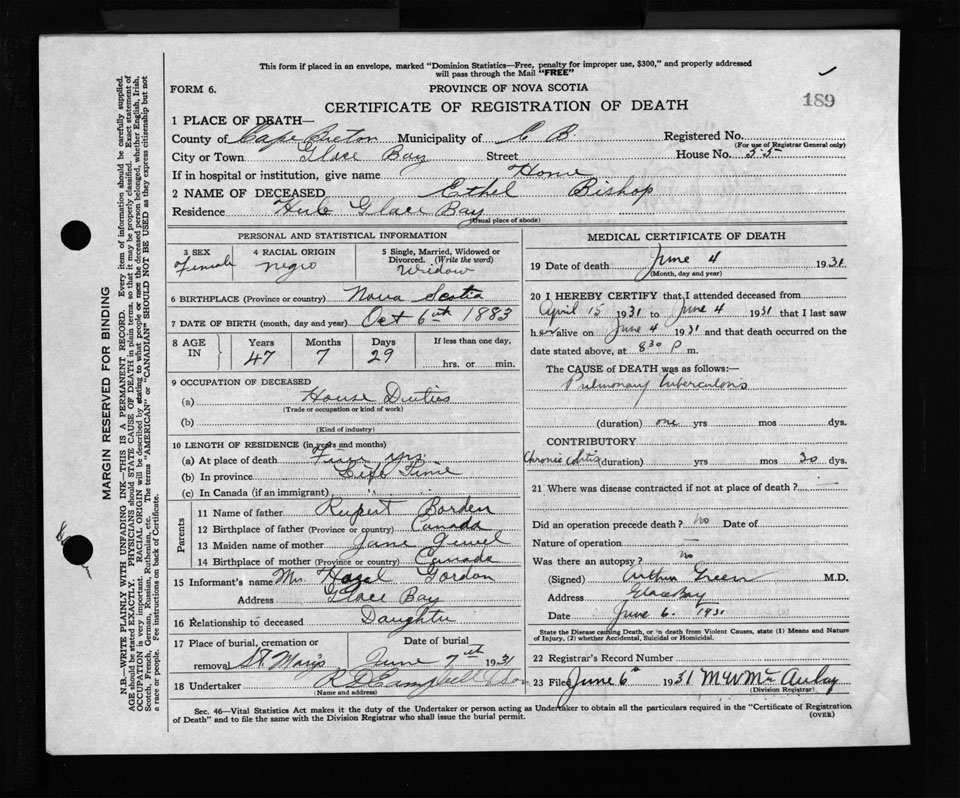 This form if placed in an envelope, marked "Dominion Statistics—Free, penalty for improper use, $300," and properly addressed
will pass through the Mail "FREE"
FORM 6.
PROVINCE OF NOVA SCOTIA
189
CERTIFICATE OF REGISTRATION OF DEATH
1 PLACE OF DEATH—
County of Cape Breton Municipality of C B. Registered No.
(For use of Registrar General only)
City or Town Glace Bay Street House No. 35
If in hospital or institution, give name Home
2 NAME OF DECEASED Ethel Bishop
Residence Glace Bay
(Usual place of abode)
PERSONAL AND STATISTICAL INFORMATION
3 SEX 4 RACIAL ORIGIN 5 Single, Married, Widowed or
Divorced. (Write the word)
Female negro Widow
6 BIRTHPLACE (Province or country) Nova Scotia
7 DATE OF BIRTH (month, day and year) Oct 6th 1883
8 AGE IN Years Months Days If less than one day,
47 7 29 hrs. or min.
9 OCCUPATION OF DECEASED
(a) House Duties
(Trade or occupation or kind of work)
(b)
(Kind of industry)
10 LENGTH OF RESIDENCE (in years and months)
(a) At place of death yrs
(b) In province Life Time
(c) In Canada (if an immigrant)
Parents
11 Name of father Rupert Borden
12 Birthplace of father (Province or country) Canada
13 Maiden name of mother Jane
14 Birthplace of mother (Province or country) Canada
15 Informant's name Mrs. Hazel Gordon
Address Glace Bay
16 Relationship to deceased Daughter
17 Place of burial, cremation or Date of burial
removal St. Marys June 7th 1931
18 Undertaker R D Campbell
(Name and address)
MEDICAL CERTIFICATE OF DEATH
19 Date of death June 4 1931
(Month, day and year)
20 I HEREBY CERTIFY that I attended deceased from
April 15 1931 to June 4 1931 that I last saw
her alive on June 4 1931 and that death occurred on
date stated above, at 8 30 P m.
The CAUSE of DEATH was as follows:—
Pulmonary Tuberculosis
(duration) one yrs mos dys.
CONTRIBUTORY
Chronic (duration) yrs mos 30 dys.
21 Where was disease contracted if not at place of death?
Did an operation precede death? no Date of
Nature of operation
Was there an autopsy? no
(Signed) Arthur Green M.D.
Address Glace Bay
Date June 6. 1931
State the Disease causing Death, or in death from Violent Causes, state (1) Means and Nature
of Injury, (2) whether Accidental, Suicidal or Homicidal.
22 Registrar's Record Number
23 Filed June 6th 1931 McAulay
(Division Registrar)
Sec. 46—Vital Statistics Act makes it the duty of the Undertaker or person acting as Undertaker to obtain all the particulars required in the "Certificate of Registration
of Death" and to file the same with the Division Registrar who shall issue the burial permit.
(OVER)
MARGIN RESERVED FOR BINDING
N.B.—WRITE PLAINLY WITH UNFADING INK—THIS IS A PERMANENT RECORD. Every item of information should be carefully supplied.
AGE should be stated EXACTLY. PHYSICIANS should STATE CAUSE OF DEATH in plain terms, so that it may be properly classified. Exact statement of
OCCUPATION is very important. RACIAL ORIGIN will be described by stating to what people or race the deceased person belonged, whether English, Irish,
Scotch, French, German, Russian, Ruthenian, etc. The terms "AMERICAN" or "CANADIAN" SHOULD NOT BE USED as they express citizenship but not
a race or people. See instructions on back of Certificate.